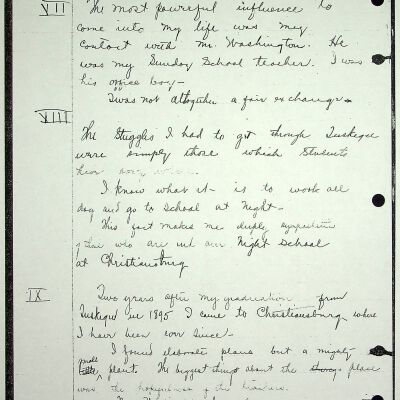 VII
The most powerful influence to
come into my life was my
contact with Mr. Washington. He
was my Sunday School teacher. I was
his office boy—
I was not altogether a fair exchange.
VIII
The Struggles I had to get through Tuskegee
were simply those which Students
have
I know what it is to work all
day and go to School at Night—
This fact makes me deeply
those who are in our Night School
at Christiansburg
IX
Two years after my graduation from
Tuskegee in 1895 I came to Christiansburg where
I have been ever since—
I found elaborate plans but a mighty
little plant. The biggest things about the place
was the hopefulness of the teachers.